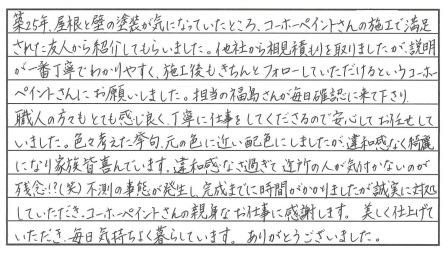 築25年、屋根と壁の塗装が気になっていたところ、コーホーペイントさんの施工で満足
された友人から紹介してもらいました。他社から相見積もりを取りましたが、説明
が一番丁寧でわかりやすく、施工後もきちんとフォローしていただけるというコーホー
ペイントさんにお願いしました。担当の福島さんが毎日確認に来て下さり、
職人の方々もとても感じ良く、丁寧に仕事をしてくださるので安心してお任せして
いました。色々考えた挙句、元の色に近い配色にしましたが、違和感なく綺麗
になり家族皆喜んでいます。違和感なさ過ぎて近所の人が気付かないのが
残念!?(笑) 不測の事態が発生し、完成までに時間がかかりましたが誠実に対処
していただき、コーホーペイントさんの親身なお仕事に感謝します。美しく仕上げて
いただき、毎日気持ちよく暮らしています。ありがとうございました。